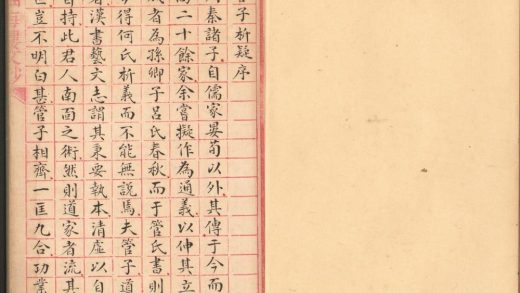 管子析疑序
周秦諸子自儒家晏荀以外其傳于今而
二十餘家余嘗擬作為通義以伸其立
成者為孫卿子呂氏春秋而于管氏書則
得何氏析義而不能無說焉夫管子道
者漢書藝文志謂其秉要執本清虛以自
自持此君人南面之術然則道家者流其
豈不明白甚管子相齊一匡九合功業